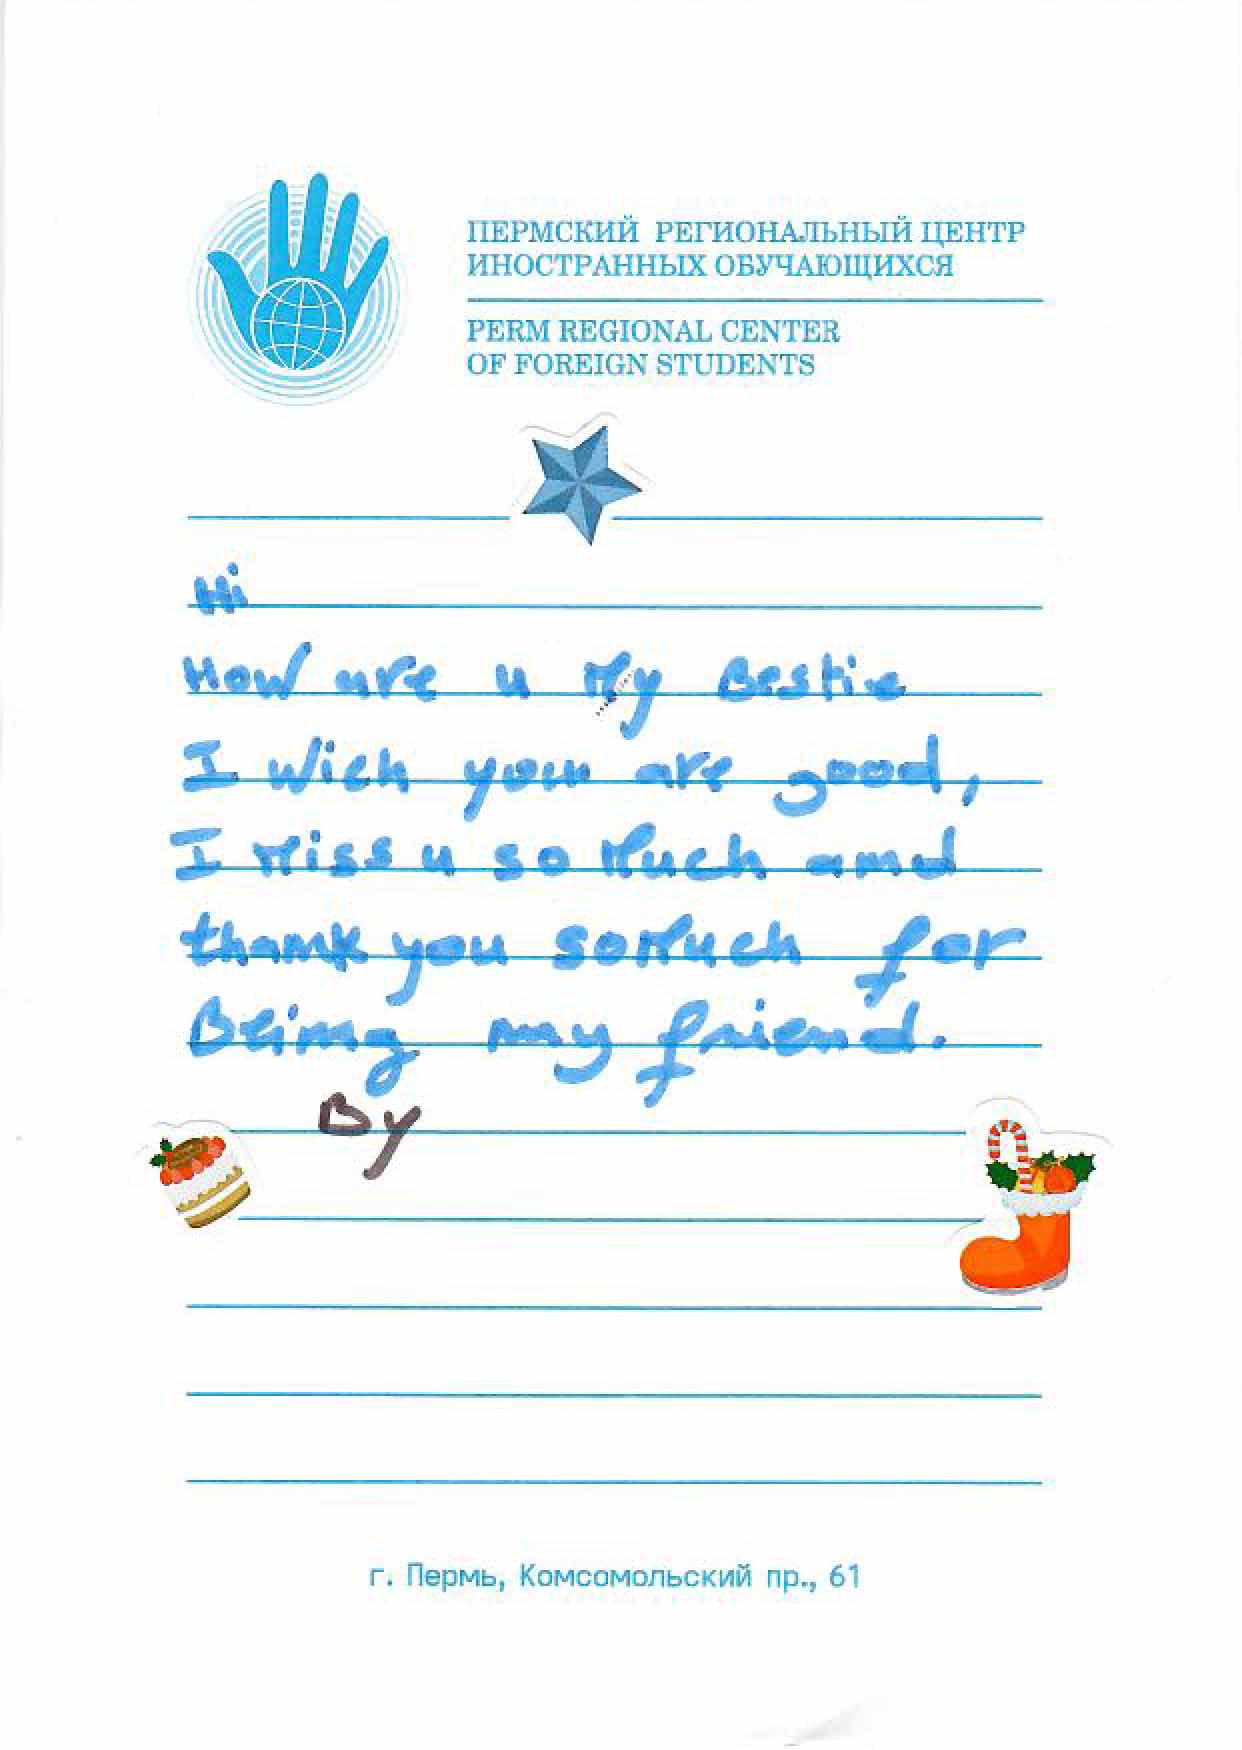 ПЕРМСКИЙ РЕГИОНАЛЬНЫЙ ЦЕНТР
ИНОСТРАННЫХ ОБУЧАЮЩИХСЯ
PERM REGIONAL CENTER
OF FOREIGN STUDENTS
Hi
How are u My Bestie
I Wich you are good,
I Miss u so Much amd
thamk you so Much for
Beimg my friend.
By
г. Пермь, Комсомольский пр., 61